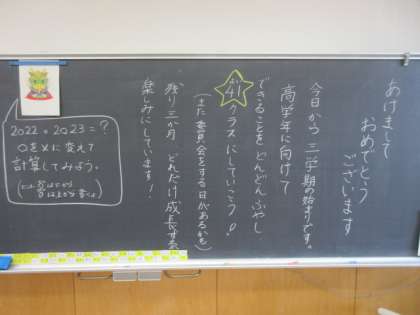 あけまして
おめでとう
ございます
今日から三学期の始まりです。
高学年に向けて
できることをどんどんふやし
41
クラスにしていこう!
(また委員会をする日があるかも)
残り三か月、どれだけ成長するか
楽しみにしています!
2022◦2023=?
○を×に変えて
計算してみよう。